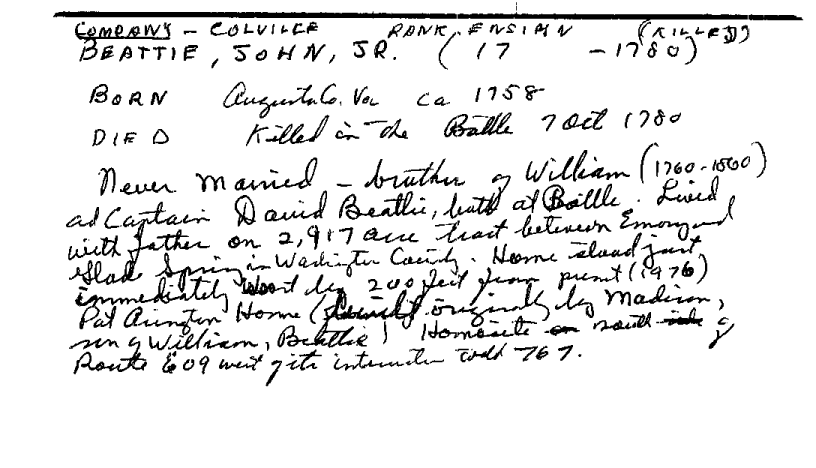 COMPANY - COLVILLE RANK, ENSIGN (KILLED)
BEATTIE, JOHN, JR. (17 -1780)
BORN Augusta Co. Va ca 1758
DIED Killed in the Battle 7 Oct 1780
Never Married - brother of William (1760-1860)
ad Captain David Beattie, both at Battle. Lived
with father on 2,917 acre tract between Emory and
Glade Spring in Washington County. Home stood just
immediately West by 200 feet from present (1976)
Pat Arington Home ( originally by Madison,
son of William, Beattie) Homesite on south side of
Route 609 west of its intersection with 767.